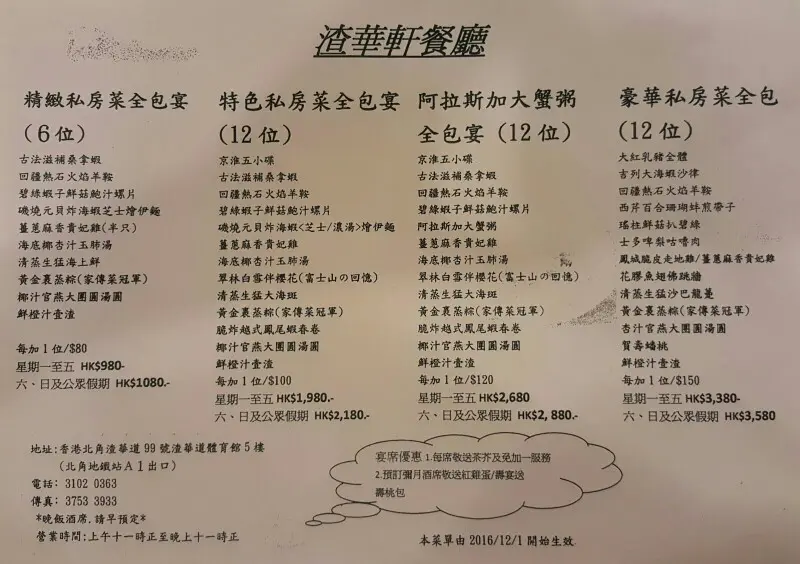 渣華軒餐廳
精緻私房菜全包宴
（6 位）
古法滋補桑拿蝦
回疆熱石火焰羊鞍
碧綠蝦子鮮菇鮑汁螺片
磯燒元貝炸海蝦芝士燴伊麵
薑蔥麻香貴妃雞(半只)
海底椰杏汁玉肺湯
清蒸生猛海上鮮
黃金裹蒸粽(家傳菜冠軍)
椰汁官燕大團圓湯圓
鮮橙汁壹渣
每加 1 位/$80
星期一至五 HK$980-
六、日及公眾假期 HK$1080.-
特色私房菜全包宴
（12 位）
京淮五小碟
古法滋補桑拿蝦
回疆熱石火焰羊鞍
碧綠蝦子鮮菇鮑汁螺片
磯燒元貝炸海蝦<芝士/濃湯>燴伊麵
薑蔥麻香貴妃雞
海底椰杏汁玉肺湯
翠林白雪伴櫻花(富士山の回憶)
清蒸生猛大海斑
黃金裹蒸粽(家傳菜冠軍)
脆炸越式鳳尾蝦春卷
椰汁官燕大團圓湯圓
鮮橙汁壹渣
每加 1 位/$100
星期一至五 HK$1,980.-
六、日及公眾假期 HK$2,180.-
阿拉斯加大蟹粥
全包宴（12 位）
京淮五小碟
古法滋補桑拿蝦
回疆熱石火焰羊鞍
碧綠蝦子鮮菇鮑汁螺片
阿拉斯加大蟹粥
薑蔥麻香貴妃雞
海底椰杏汁玉肺湯
翠林白雪伴櫻花(富士山の回憶)
清蒸生猛大海斑
黃金裹蒸粽(家傳菜冠軍)
脆炸越式鳳尾蝦春卷
椰汁官燕大團圓湯圓
鮮橙汁壹渣
每加 1 位/$120
星期一至五 HK$2,680
六、日及公眾假期 HK$2,880.-
豪華私房菜全包
（12 位）
大紅乳豬全體
吉列大海蝦沙律
回疆熱石火焰羊鞍
西芹百合珊瑚蚌煎帶子
瑤柱鮮菇扒碧綠
士多啤梨咕嚕肉
鳳城脆皮走地雞/薑蔥麻香貴妃雞
花膠魚翅佛跳牆
清蒸生猛沙巴龍躉
黃金裹蒸粽(家傳菜冠軍)
杏汁官燕大團圓湯圓
賀壽蟠桃
鮮橙汁壹渣
每加 1 位/$150
星期一至五 HK$3,380-
六、日及公眾假期 HK$3,580
地址:香港北角渣華道 99 號渣華道體育館 5 樓
(北角地鐵站Ａ１出口)
電話: 3102 0363
傳真: 3753 3933
*晚飯酒席,請早預定*
營業時間:上午十一時正至晚上十一時正
宴席優惠 1.每席敬送茶芥及免加一服務
2.預訂彌月酒席敬送紅雞蛋/壽宴送
壽桃包
本菜單由 2016/12/1 開始生效.